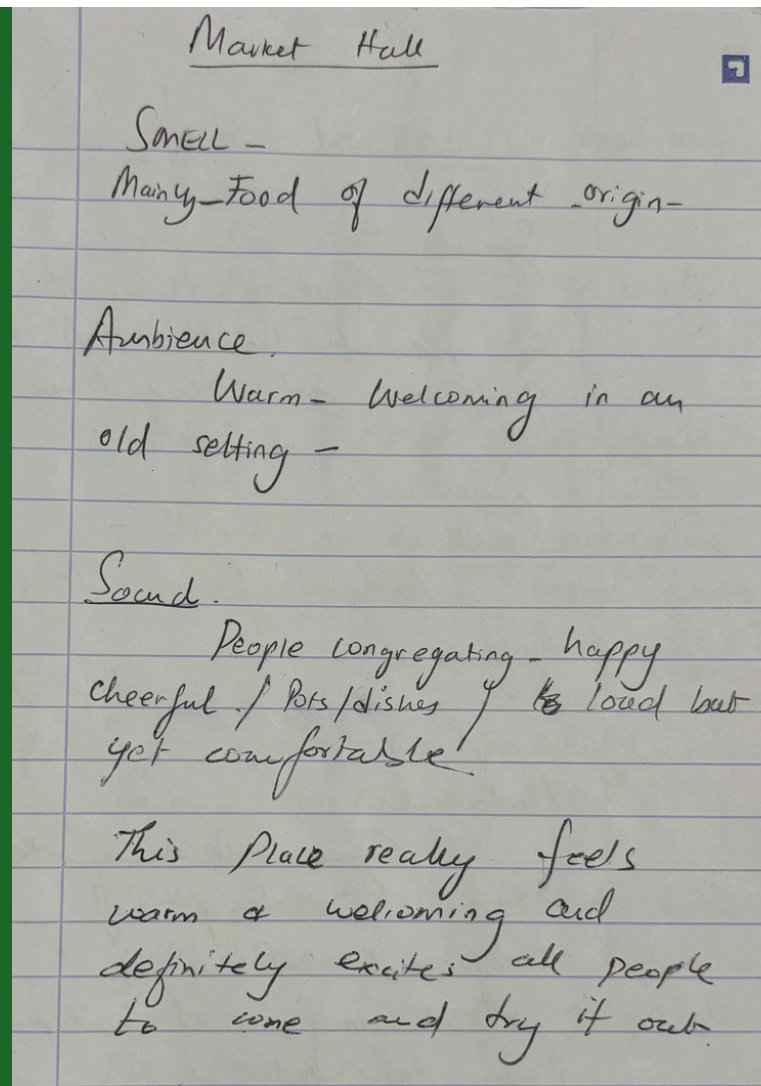 Market Hall
SMELL -
Mainly - Food of different - origin -
Ambience.
Warm - Welcoming in an
old setting -
Sound.
People congregating - happy
cheerful / Pots/dishes / loud but
yet comfortable
This Place really feels
warm & welcoming and
definitely excites all people
to come and try it out